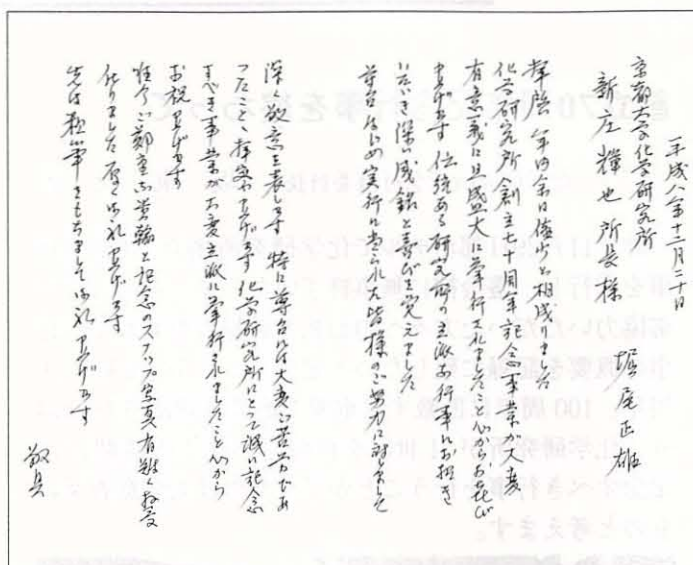 平成八年十二月二十日
京都大学化学研究所
新庄輝也 所長様
堀尾正雄
拝啓 年内余日僅少と相成りました
化学研究所創立七十周年記念事業が大変
有意義に且盛大に挙行されましたこと心からお喜び
申上げます 伝統ある研究所の立派な行事にお招き
いただき深い感銘と喜びを覚えました
尊台はじめ実行に当られた皆様のご努力に対しまして
深く敬意を表します 特に尊台には大変ご苦労であ
ったことと拝察申上げます 化学研究所にとって誠に記念
すべき事業が大変立派に挙行されましたこと心から
お祝申上げます
ご鄭重な御書翰と記念のスナップ写真有難く拝受
仕りました 厚く御礼申上げます
先は乱筆をもちまして御礼申上げます
敬具